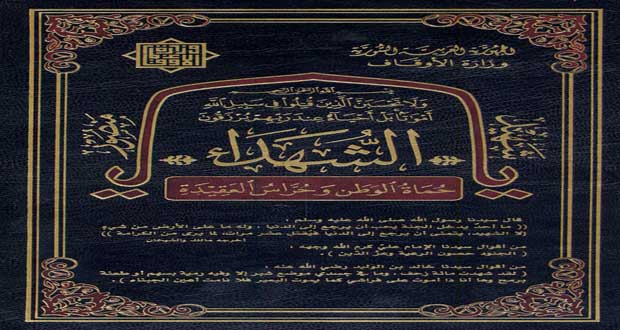 الجمهورية العربية السورية
وزارة الأوقاف
بسم الله الرحمن الرحيم
ولا تحسبن الذين قتلوا في سبيل الله
أمواتا بل أحياء عند ربهم يرزقون
الشهداء
حماة الوطن وحراس العقيدة
قال سيدنا رسول الله صلى الله عليه وسلم :
(( ما أحد يدخل الجنة يحب أن يرجع إلى الدنيا ، وله ما على الأرض من شيء
إلا الشهيد، يتمنى أن يرجع إلى الدنيا فيقتل عشر مرات، لما يرى من الكرامة ))
أخرجه مالك والشيخان
من أقوال سيدنا الإمام علي كرم الله وجهه :
( الجنود حصون الرعية وعز الدين ) .
من أقوال سيدنا خالد بن الوليد رضي الله عنه :
( لقد شهدت مائة زحف، وما في جسدي موضع شبر إلا وفيه رمية بسهم أو طعنة
برمح وها أنا ذا أموت على فراشي كما يموت البعير فلا نامت أعين الجبناء ) .